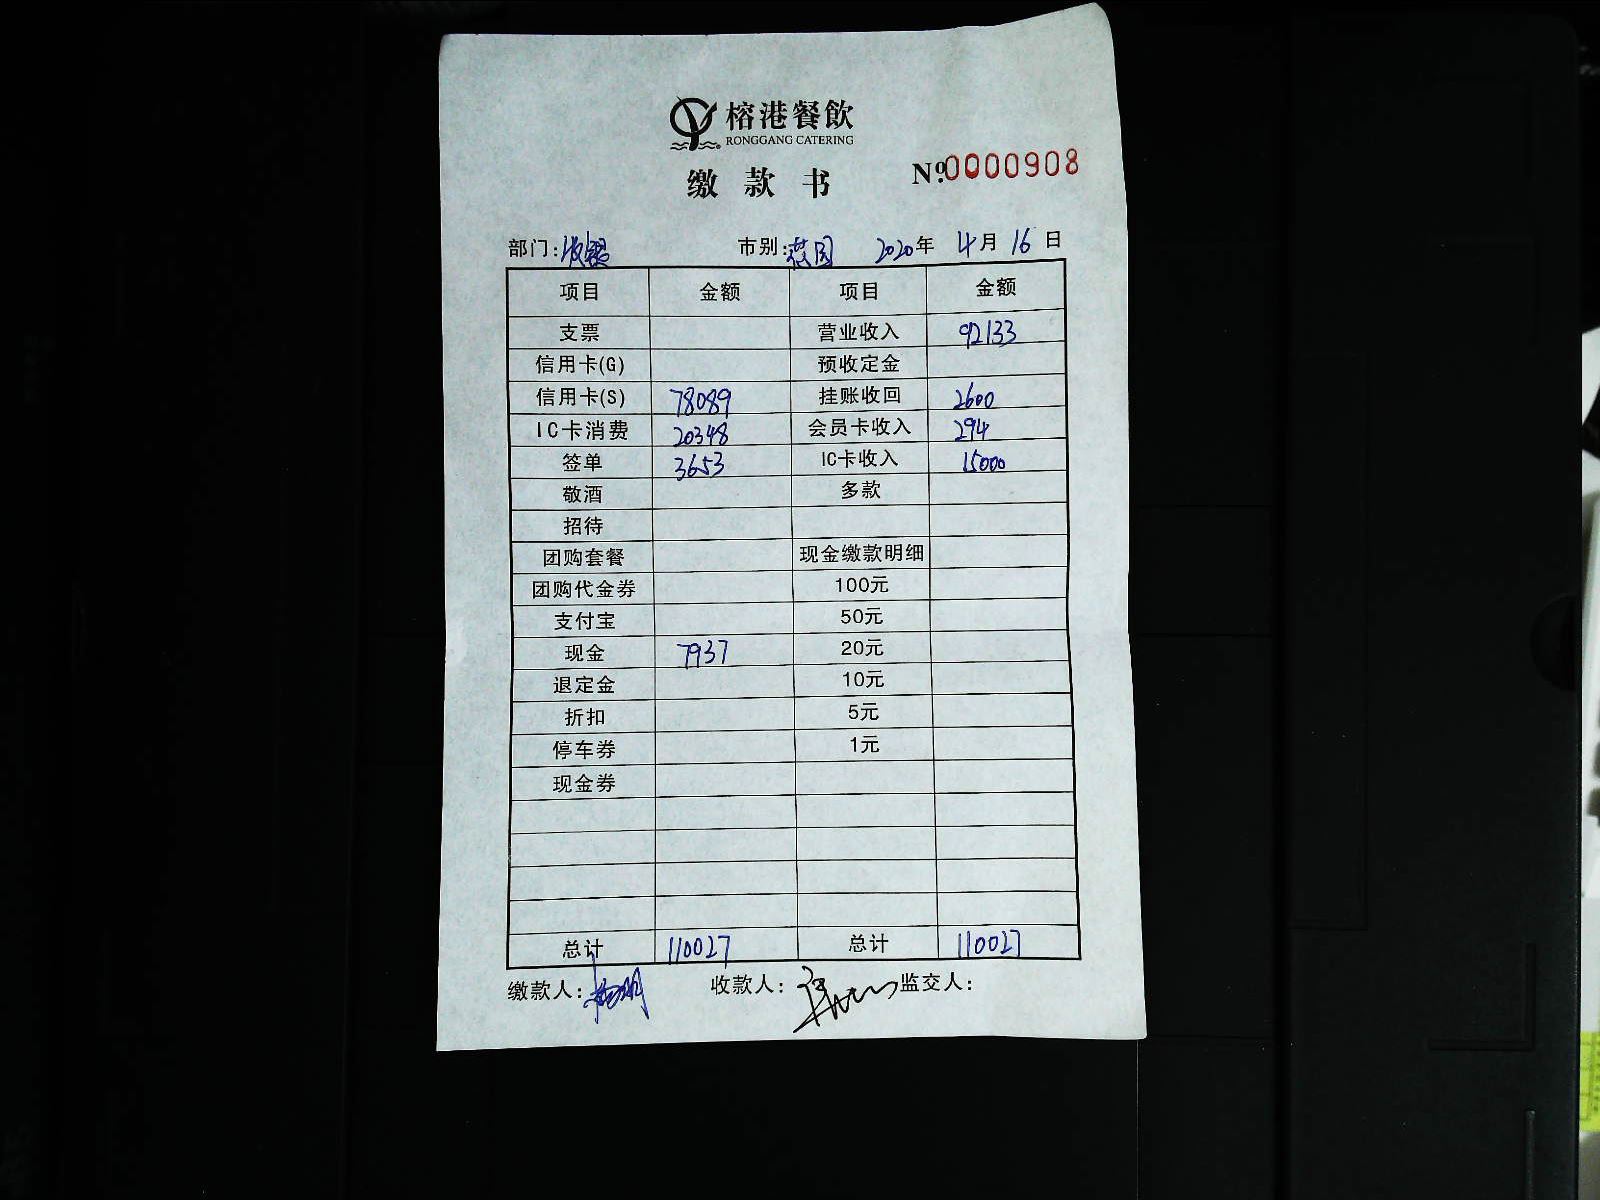 榕港餐飲
RONGGANG CATERING
缴款书
Nº.0000908
部门:收银 市别: 2020年 4月 16日
项目 金额 项目 金额
支票 营业收入 92133
信用卡(G) 预收定金
信用卡(S) 78089 挂账收回 2600
IC卡消费 20348 会员卡收入 294
签单 3653 IC卡收入 15000
敬酒 多款
招待
团购套餐 现金缴款明细
团购代金券 100元
支付宝 50元
现金 7937 20元
退定金 10元
折扣 5元
停车券 1元
现金券
总计 110027 总计 110027
缴款人: 收款人: 监交人: